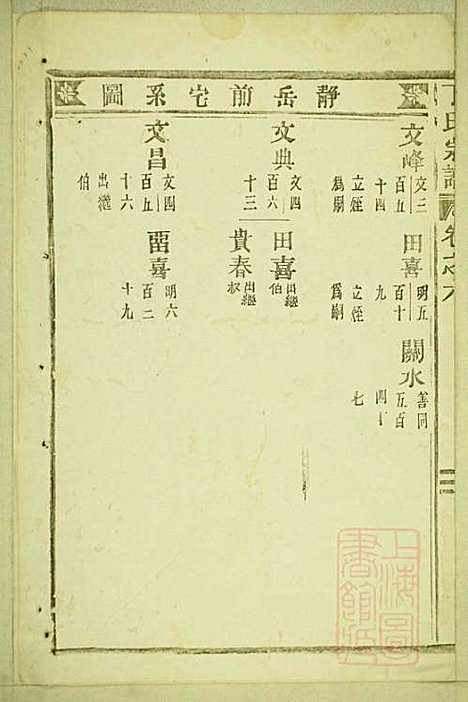 靜岳前宅系圖
文峰
文三
百五
十四
立姪
爲嗣
田喜
明五
百十
九
立姪
爲嗣
關水
善同
五百
四十
七
文典
文四
百六
十三
田喜
出繼
伯
貴春
出繼
叔
文昌
文四
百五
十六
出繼
伯
畱喜
明六
百二
十九
丁氏宗譜
卷之六
二
上海圖
書館藏